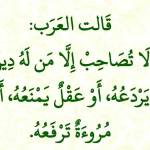 قَالت العَرَب:
لَا تُصَاحِبْ إِلَّا مَن لَهُ
يَردَعُهُ، أَوْ عَقْلٌ يَمْنَعُهُ،
مُروءَةٌ تَرْفَعُهُ.